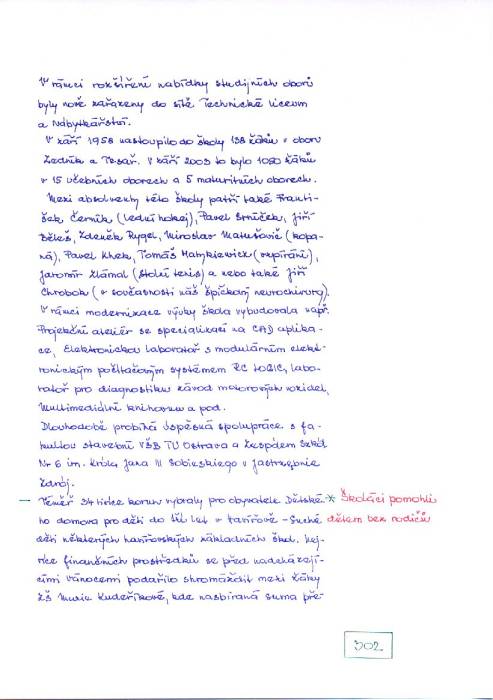 V rámci rozšíření nabídky studijních oborů
byly nově zařazeny do sítě Technické lyceum
a Nábytkářství.
V září 1958 nastoupilo do školy 138 žáků v oboru
Zedník a Tesař. V září 2003 to bylo 1080 žáků
v 15 učebních oborech a 5 maturitních oborech.
Mezi absolventy této školy patří také Franti-
šek Černík (lední hokej), Pavel Srníček, Jiří
Běleš, Zdeněk Rygel, Miroslav Matušovič (kopa-
ná), Pavel Khek, Tomáš Matykiewicz (vzpírání),
Jaromír Zlámal (stolní tenis) a nebo také Jiří
Chrobok (v současnosti náš špičkový neurochirurg).
V rámci modernizace výuky škola vybudovala např.
Projekční ateliér se specializací na CAD aplika-
ce, Elektronickou laboratoř s modulárním elekt-
ronickým počítačovým systémem RC LOGIC, labo-
ratoř pro diagnostiku závod motorových vozidel,
Multimediální knihovnu a pod.
Dlouhodobě probíhá úspěšná spolupráce s fa-
kultou stavební VŠB TU Ostrava a Zespołem Szkół
Nr 6 im. Króla Jana III Sobieskiego v Jastrzębie
Zdrój.
— Téměř 34 tisíce korun vybraly pro obyvatele Dětské- * Školáci pomohli
ho domova pro děti do tří let v Havířově - Suché dětem bez rodičů
děti některých havířovských základních škol. Nej-
více finančních prostředků se před nadcházejí-
cími vánocemi podařilo shromáždit mezi žáky
ZŠ Marie Kudeříkové, kde nasbíraná suma pře-
302